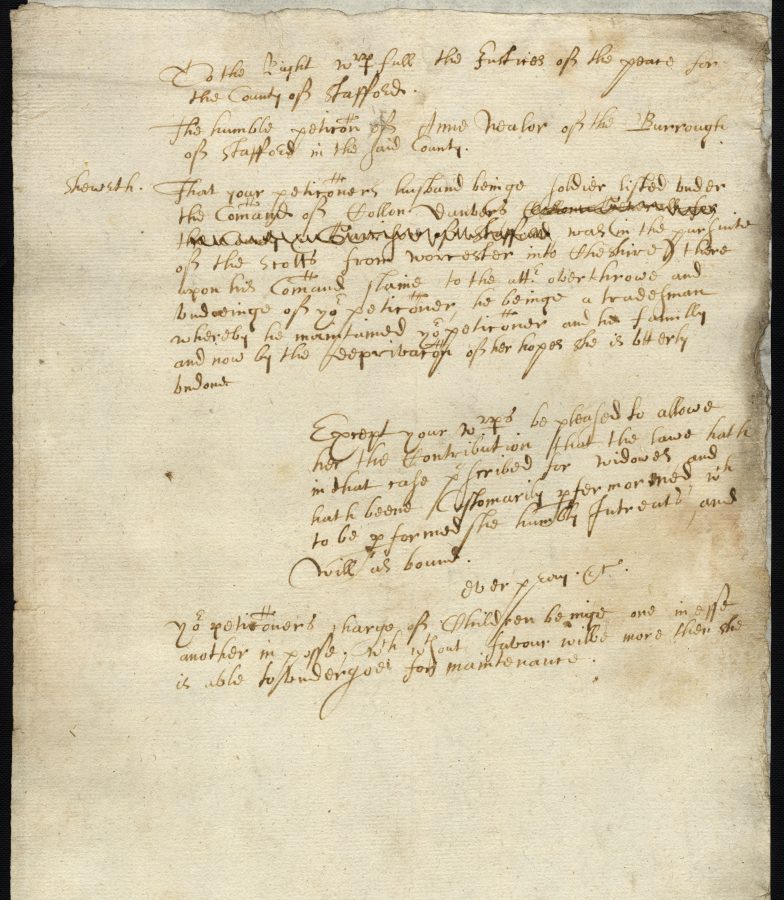 To the Right wrpfull the Justices of the peace for
the County of Stafford.
The humble peticon of Anne Nealor of the Burrough
of Stafford in the said County.
Sheweth. That your peticoners husband beinge soldier listed under
the Comand of Collon Danvers
was in the pursuite
of the Scotts from Worcester into Cheshire) there
upon his Comand slaine to the uttr overthrowe and
undoeinge of yor peticoner, he beinge a tradesman
whereby he maintained yor peticoner and his familly
and now by the deprivacon of her hopes she is utterly
undone
Except your wrps be pleased to allowe
her the Contribution that the lawe hath
in that case pscribed for widowes and
hath beene Customarily pformed wch
to be pformed she humbly Intreats and
will as bound.
ever pray. &c.
yor peticoners charge of Children beinge one in esse
another in posse. wch wthout favour wilbe more then she
is able to undergoe for maintenance.